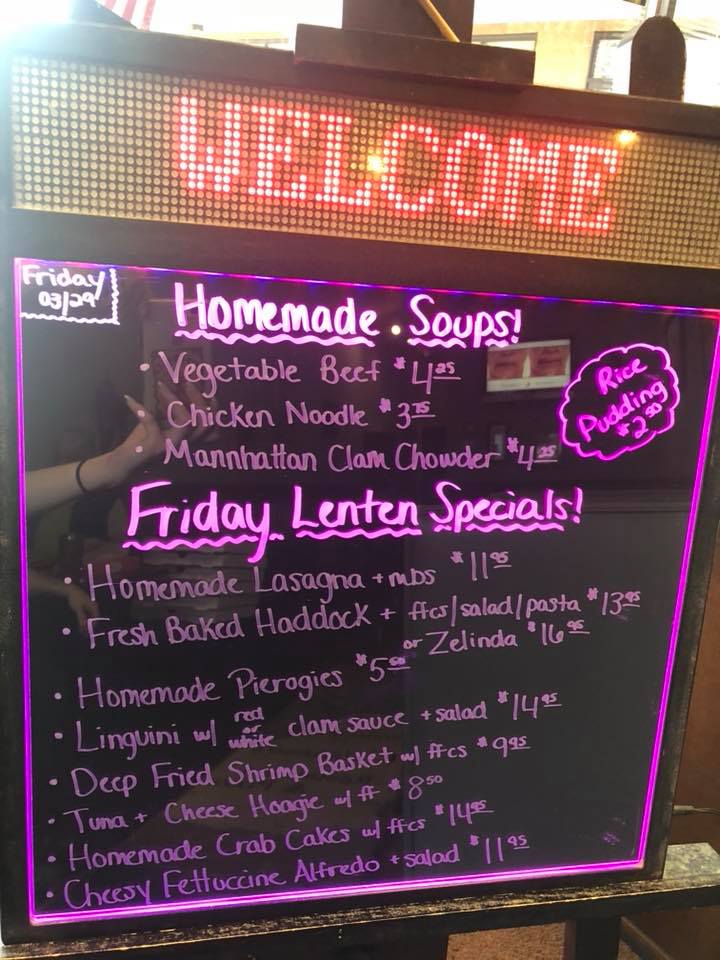 WELCOME
Friday
03/29
Homemade Soups!
• Vegetable Beef $4.25
• Chicken Noodle $3.75
• Mannhattan Clam Chowder $4.25
Rice
Pudding
$2.50
Friday Lenten Specials!
• Homemade Lasagna + mbs $11.95
• Fresh Baked Haddock + ffcs/salad/pasta $13.95
or Zelinda $16.95
• Homemade Pierogies $5.50
• Linguini w/ red or white clam sauce + salad $14.95
• Deep Fried Shrimp Basket w/ ffcs $9.95
• Tuna + Cheese Hoagie w/ ff $8.50
• Homemade Crab Cakes w/ ffcs $14.95
• Cheesy Fettuccine Alfredo + salad $11.95